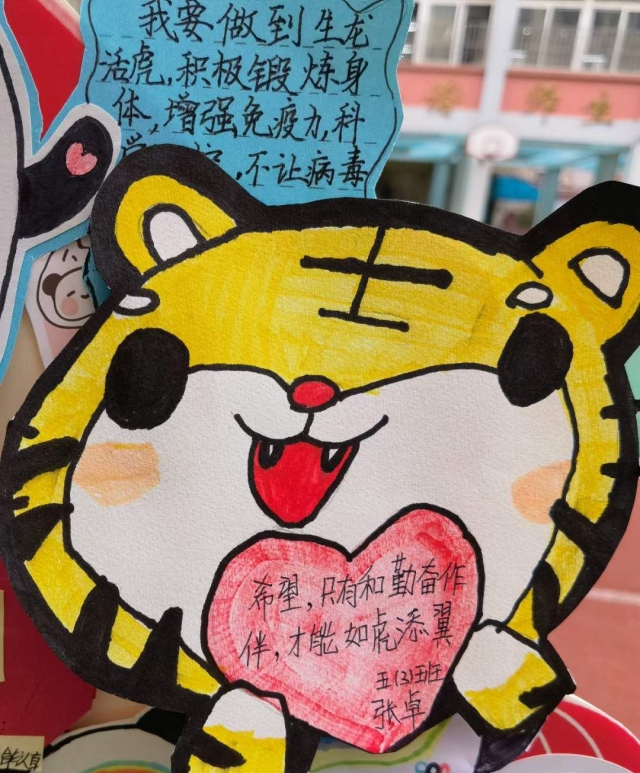 我要做到生龙
活虎，积极锻炼身
体，增强免疫力，科
，不让病毒
希望，只有和勤奋作
伴，才能如虎添翼
五(3)班
张卓